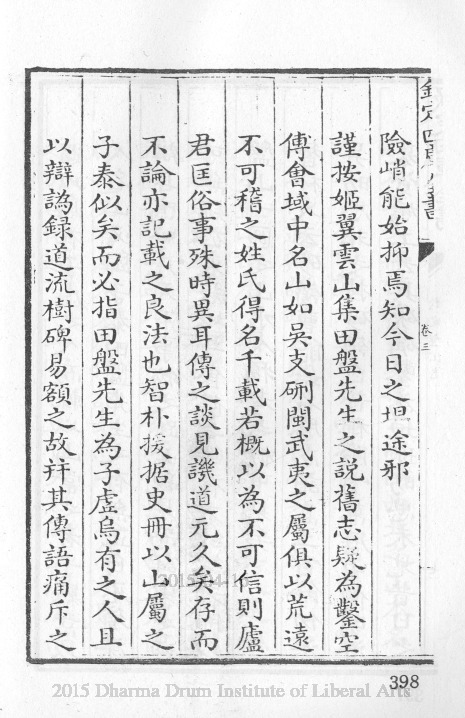 欽定四庫全書
卷三
險峭能始抑焉知今日之坦途邪
謹按姬翼雲山集田盤先生之說舊志疑為鑿空
傅會域中名山如吳支硎閩武夷之屬俱以荒遠
不可稽之姓氏得名千載若概以為不可信則廬
君匡俗事殊時異耳傳之談見譏道元久矣存而
不論亦記載之良法也智朴援据史冊以山屬之
子泰似矣而必指田盤先生為子虛烏有之人且
以辯譌録道流樹碑易額之故并其傳語痛斥之
398
2015 Dharma Drum Institute of Liberal Arts